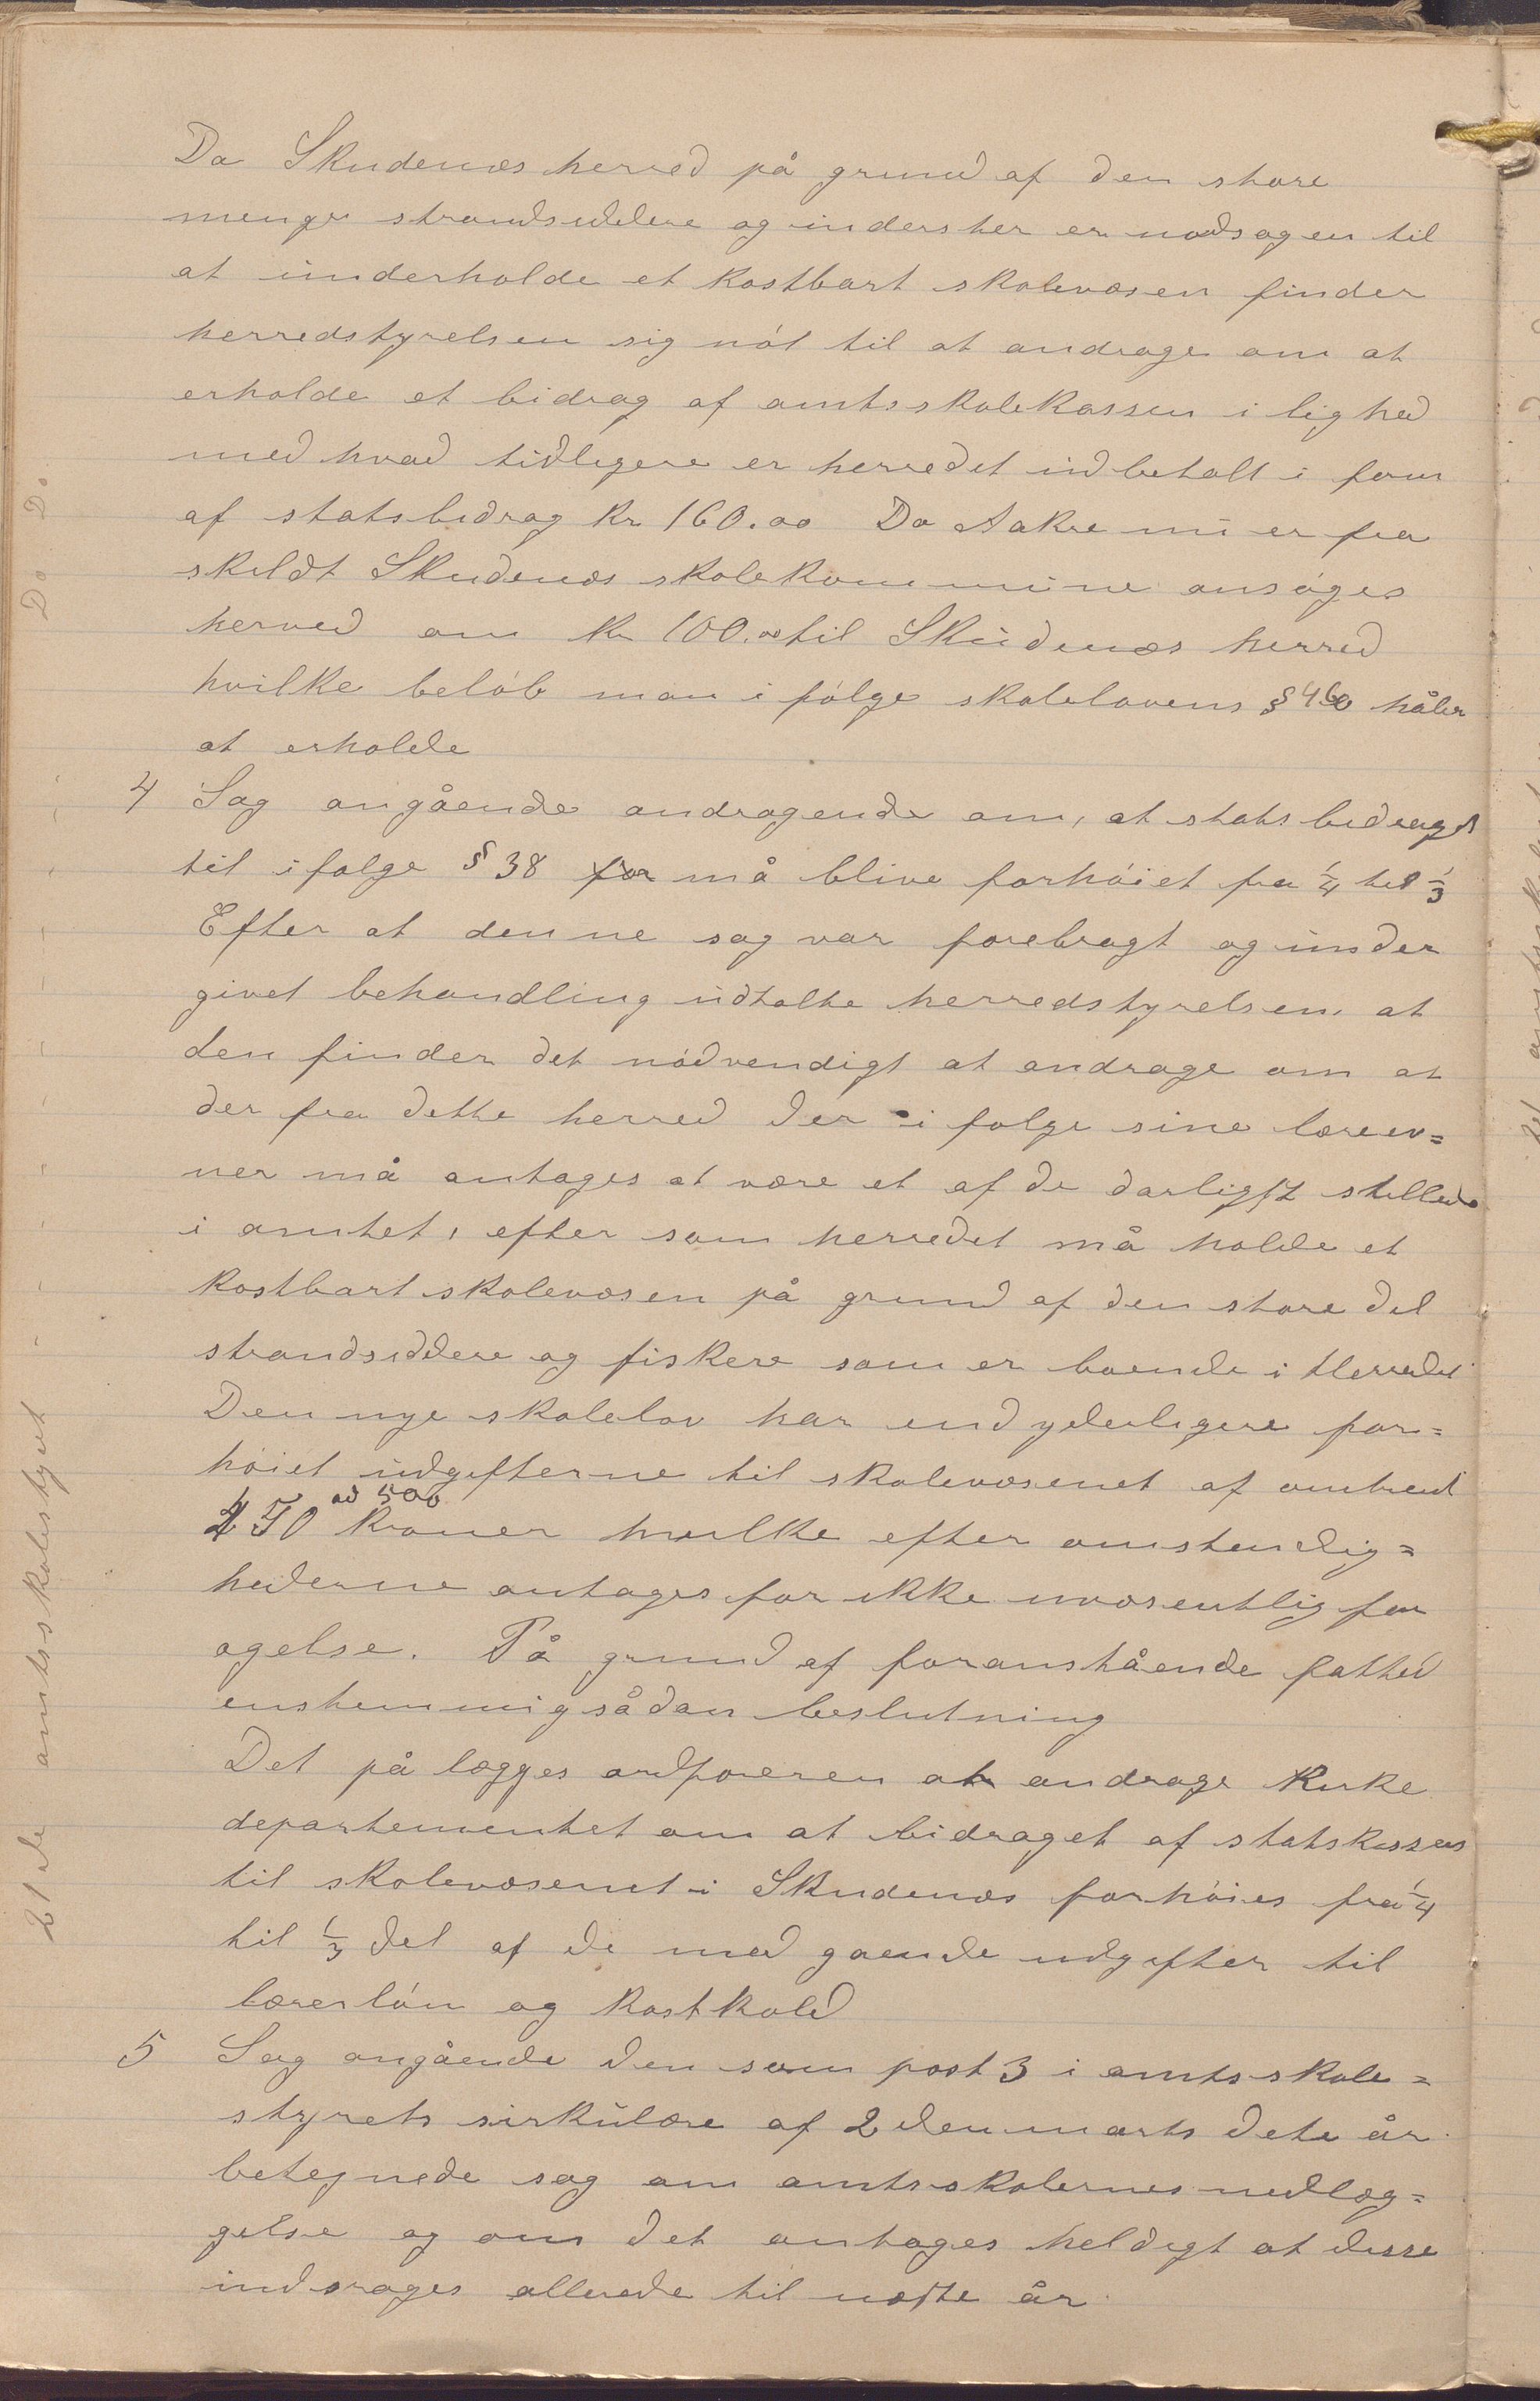 Da Skudenæs herred på grund af den store
menge strandsiddere og inderster er nødsagen til
at underholde et kostbart skolevæsen finder
herredstyrelsen sig nöt til at andrage om at
erholde et bidrag af amtsskolekassen i lighed
med hvad tidligere er herredet indbetalt i form
af statsbidrag Kr 160.00 Da Aakre nu er fra
skildt Skudenæs skolekommune ansöges
herved om Kr 100.00 til Skudenæs herred
hvilke belöb man i fölge skolelovens § 46 håber
at erholde
4 Sag angående andragende om, at statsbidraget
til ifolge § 38 for må blive forhöiet fra 1/4 til 1/3
Efter at denne sag var forebragt og under
givet behandling udtalte herredstyrelsen at
den finder det nödvendigt at andrage om at
der fra dette herred der i folge sine læreev=
ner må antages at være et af de darligst stillede
i amtet, efter som herredet må holde et
kostbart skolevæsen på grund af den store del
strandsiddere og fiskere som er boende i Herredet
Den nye skolelov har end yderligere for=
höiet udgifterne til skolevæsenet af omtrent
450 ad 500 kroner hvilke efter omstendig=
hederne antages for ikke uvæsentlig for
ogelse. På grund af foranstående fatted
enstemmig sådan beslutning
Det på lægges ordforeren at andrage Kirke
departementet om at bidraget af statskassen
til skolevæsenet i Skudenæs forhöies fra 1/4
til 1/3 del af de med gaende udgifter til
lærerlön og kosthold
5 Sag angående den som post 3 i amtsskole=
styrets sirkulære af 2den marts dete år
betegnede sag om amtsskolernes nedlæg=
gelse og om det antages heldigt at disse
inddrages allerede til næste år
21 de amtsskolestyret - - - - - - - Do Do